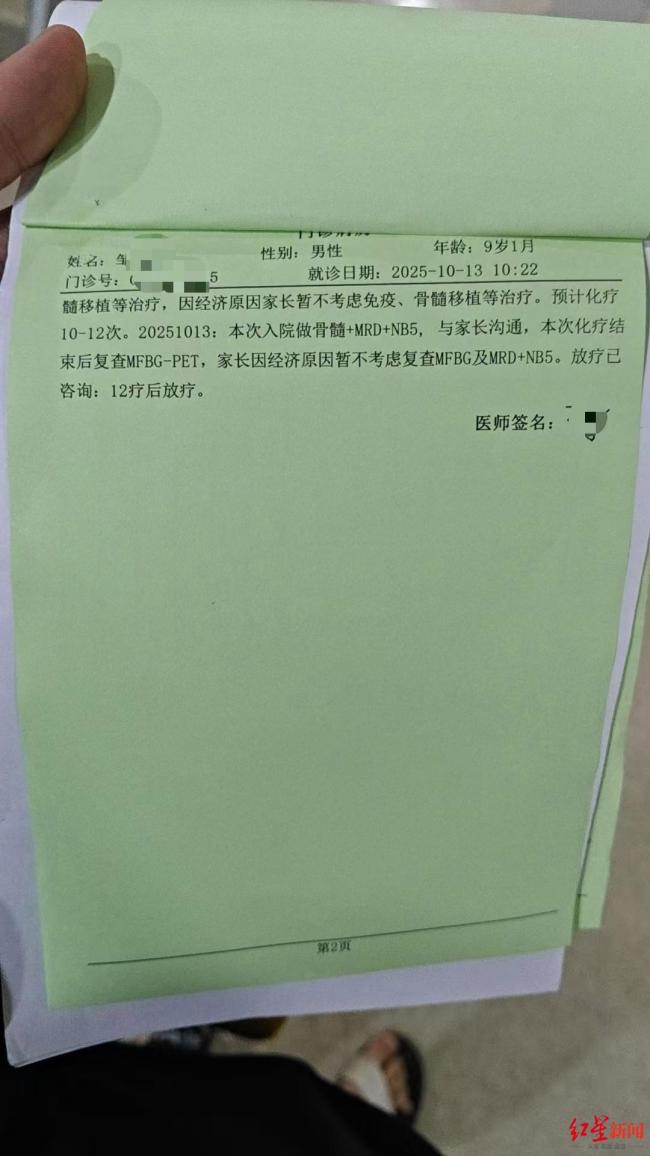 门诊病历
姓名：邹 性别：男性 年龄：9岁1月
门诊号：0 5 就诊日期：2025-10-13 10:22
髓移植等治疗，因经济原因家长暂不考虑免疫、骨髓移植等治疗。预计化疗
10-12次。20251013：本次入院做骨髓+MRD+NB5，与家长沟通，本次化疗结
束后复查MFBG-PET，家长因经济原因暂不考虑复查MFBG及MRD+NB5。放疗已
咨询：12疗后放疗。
医师签名：
第2页
红星新闻